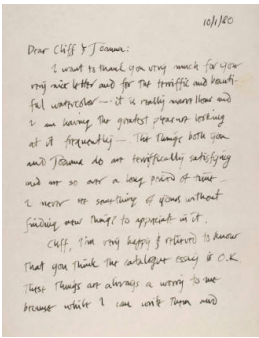 10/1/80
Dear Cliff & Joanna:
I want to thank you very much for your
very nice letter and for the terrific and beauti-
ful watercolor — it is really marvelous and
I am having the greatest pleasure looking
at it frequently — The things both you
and Joanna do are terrifically satisfying
and are so over a long period of time.
I never see something of yours without
finding new things to appreciate in it.
Cliff, I'm very happy & relieved to know
that you think the catalogue essay is O.K.
These things are always a worry to me
because while I can write them and